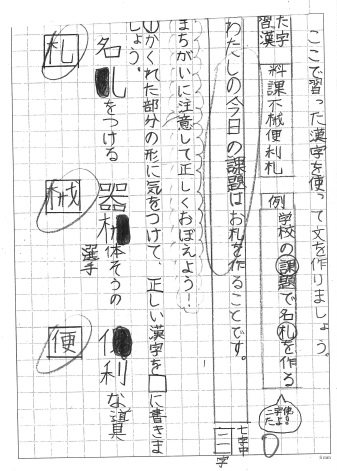 ここで習った漢字を使って文を作りましょう。
た字
習漢
料課不械便利札
例
学校の課題で名札を作る
二字使ったよ!
わたしの今日の課題はお札を作ることです。
七字中
二字
まちがいに注意して正しくおぼえよう!
①かくれた部分の形に気をつけて、正しい漢字を□に書きましょう。
名札をつける
札
器械体そうの選手
械
便利な道具
便